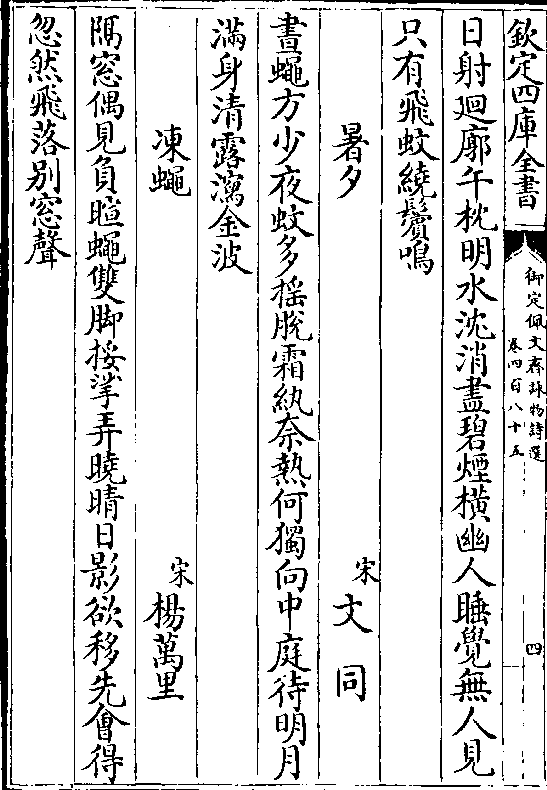 欽定四庫全書
御定佩文齋詠物詩選
卷四百八十五
四
日射廻廊午枕明水沈消盡碧煙橫幽人睡覺無人見
只有飛蚊繞鬢鳴
暑夕
宋文同
晝蠅方少夜蚊多摇脫霜紈奈熱何獨向中庭待明月
滿身清露瀉金波
凍蠅
宋楊萬里
隔窓偶見負暄蠅雙脚挼挲弄曉晴日影欲移先會得
忽然飛落别窓聲